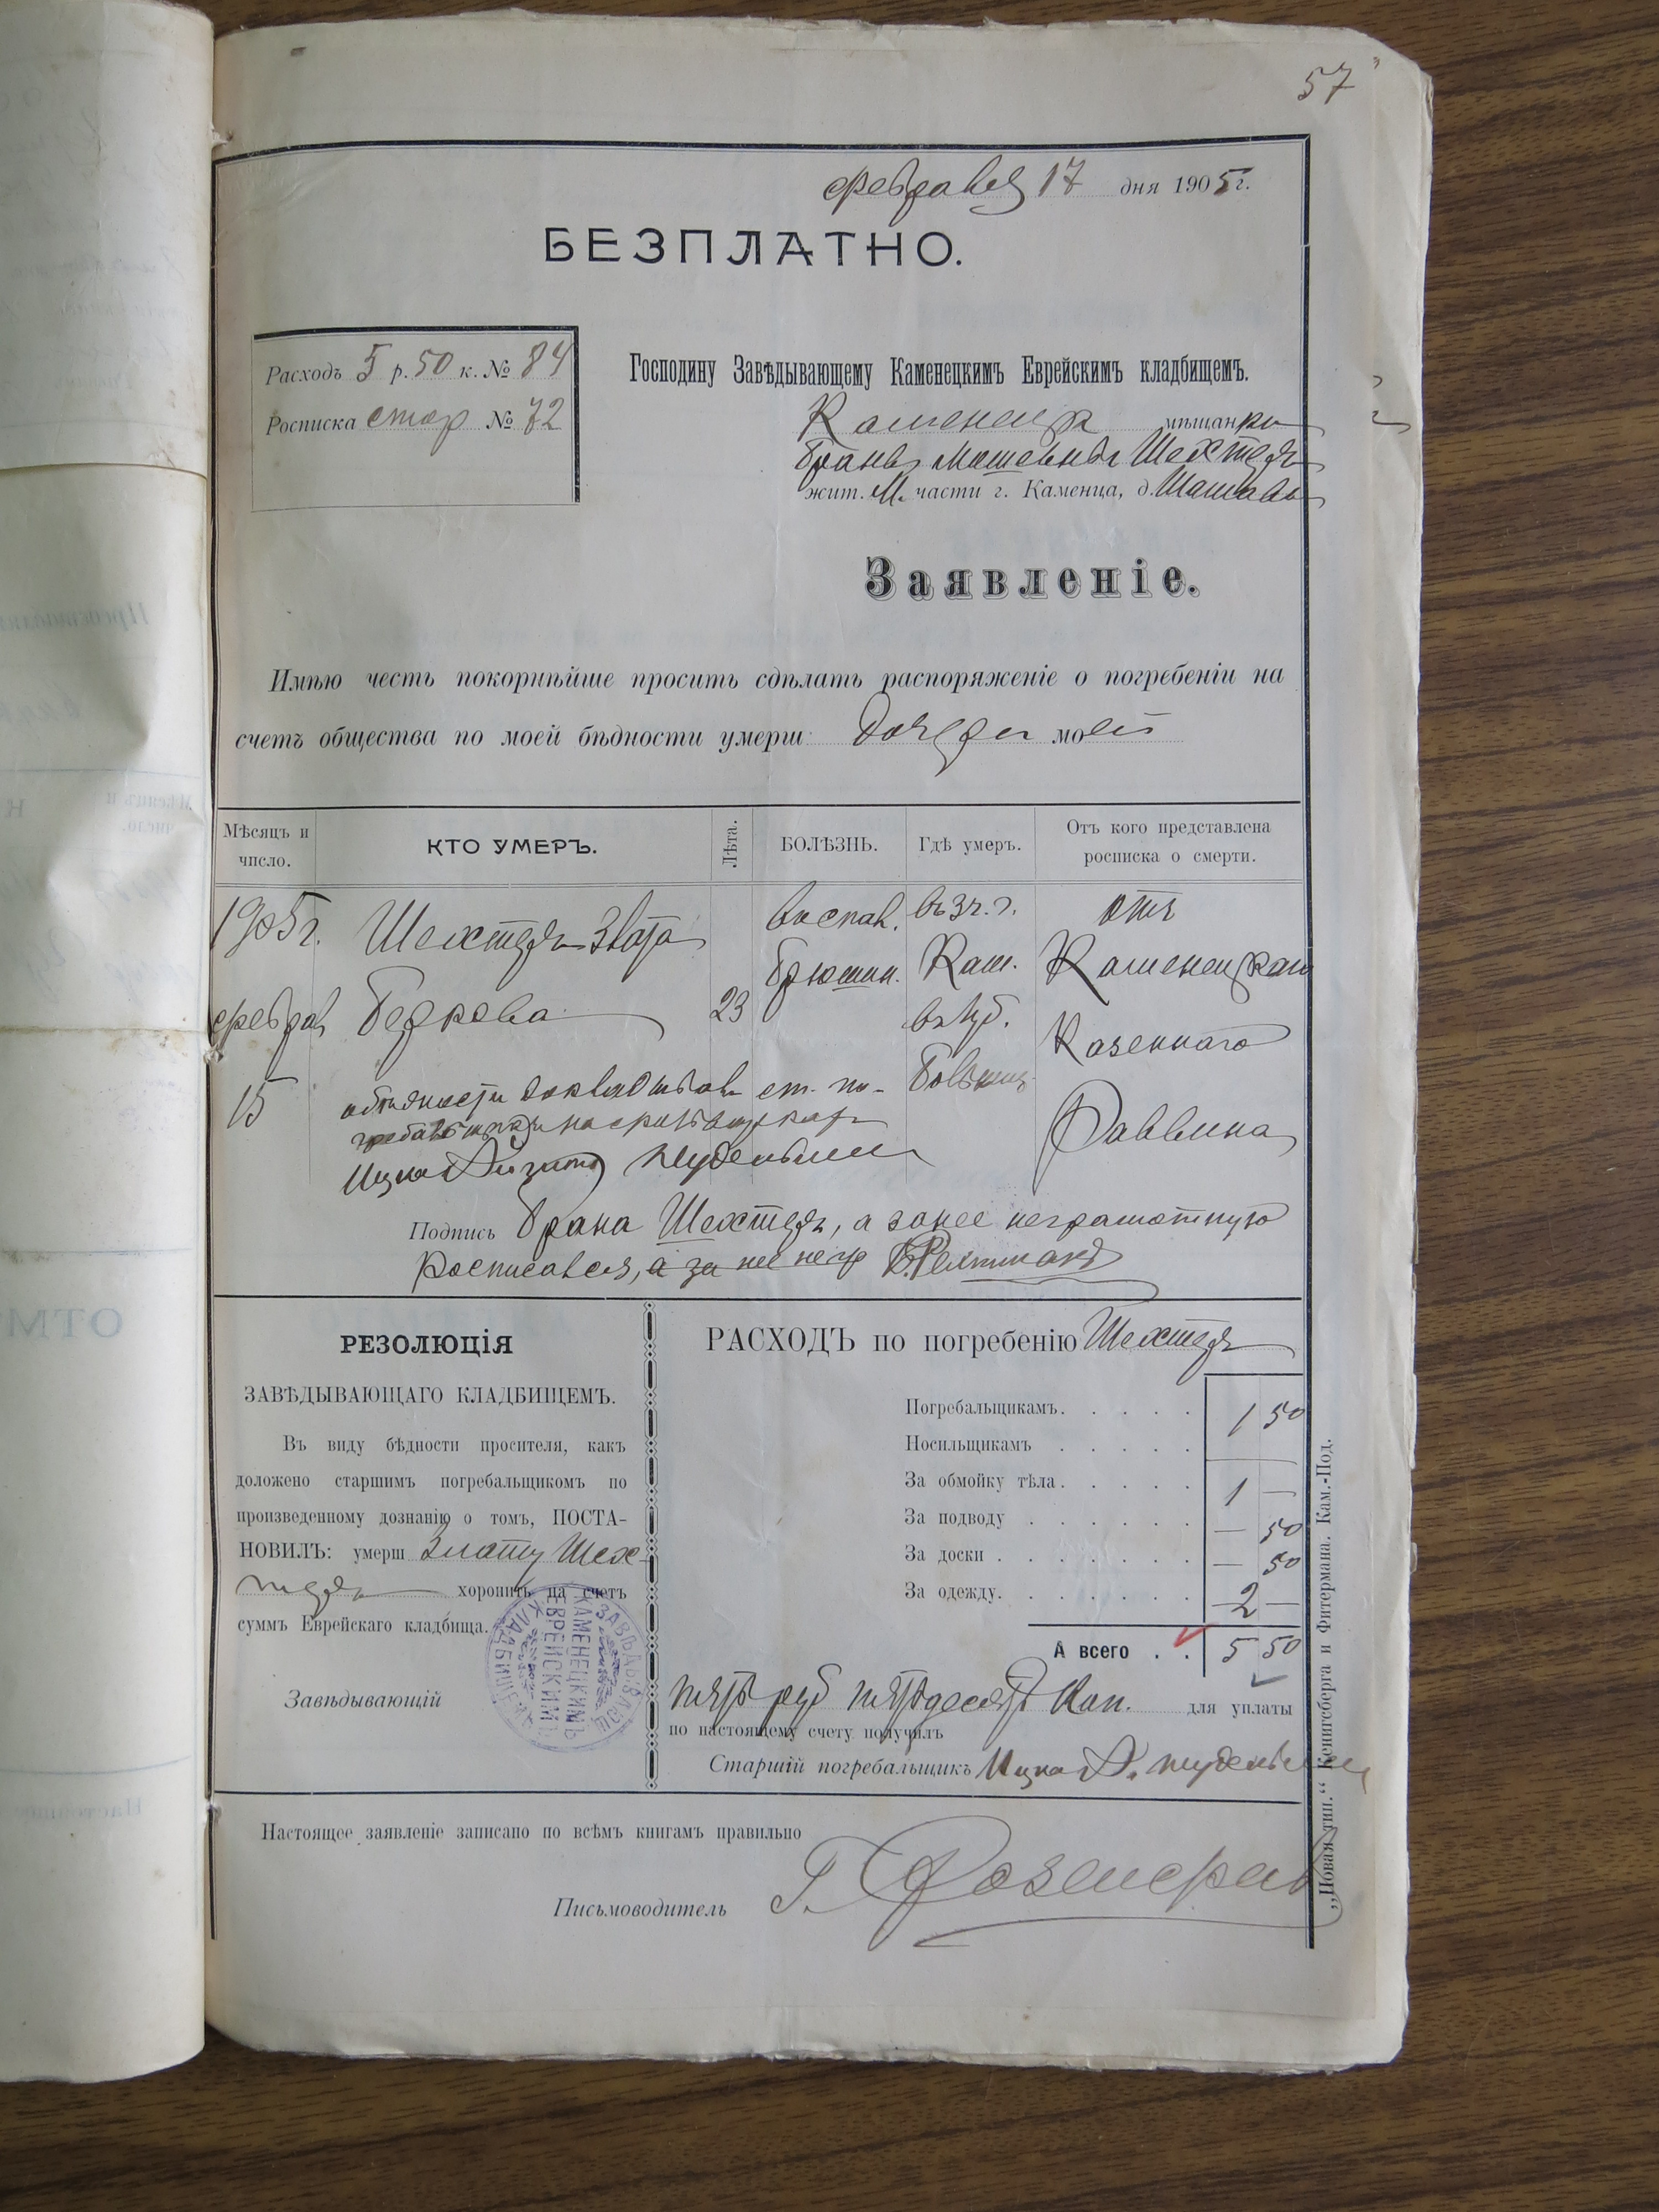 57
февраля 17 дня 1905 г.
БЕЗПЛАТНО.
Расходъ 5 р. 50 к. № 84
Росписка стар № 72
Господину Завѣдывающему Каменецкимъ Еврейскимъ кладбищемъ.
Каменецк мѣщанки
Браны Мошевны Шехтеръ
жит. части г. Каменца, д.
Заявленіе.
Имѣю честь покорнѣйше просить сдѣлать распоряженіе о погребеніи на
счетъ общества по моей бѣдности умерш дочери моей
Мѣсяцъ и число.
КТО УМЕРЪ.
Лѣта.
БОЛѢЗНЬ.
Гдѣ умеръ.
Отъ кого представлена росписка о смерти.
1905 г. Шехтеръ Злата воспал. въ зч. г. отъ
брюшин. Кам. Каменецкаго
феврал Беркова 23 въ губ. Казеннаго
15 больниц Раввина
о бѣдности докладывалъ ст. по-
Ицко
Подпись Брана Шехтеръ, а за нее неграмотную
росписался, а за нее негр
РЕЗОЛЮЦІЯ
ЗАВѢДЫВАЮЩАГО КЛАДБИЩЕМЪ.
Въ виду бѣдности просителя, какъ
доложено старшимъ погребальщикомъ по
произведенному дознанію о томъ, ПОСТА-
НОВИЛЪ: умерш Злату Шех-
теръ хоронить на счетъ
суммъ Еврейскаго кладбища.
Завѣдывающій
ЗАВѢДЫВАЮЩІЙ КАМЕНЕЦКИМЪ ЕВРЕЙСКИМЪ КЛАДБИЩЕМЪ
РАСХОДЪ по погребенію Шехтеръ
Погребальщикамъ. . . . . 1 50
Носильщикамъ . . . . .
За обмойку тѣла. . . . . 1 —
За подводу . . . . . . — 50
За доски . . . . . . . — 50
За одежду. . . . . . . 2 —
А всего . . 5 50
пять руб пятьдесятъ Коп. для уплаты
по настоящему счету получилъ
Старшій погребальщикъ Ицко
Настоящее заявленіе записано по всѣмъ книгамъ правильно
Письмоводитель Г.
„Новая тип.“ Кенигсберга и Фитермана. Кам.-Под.